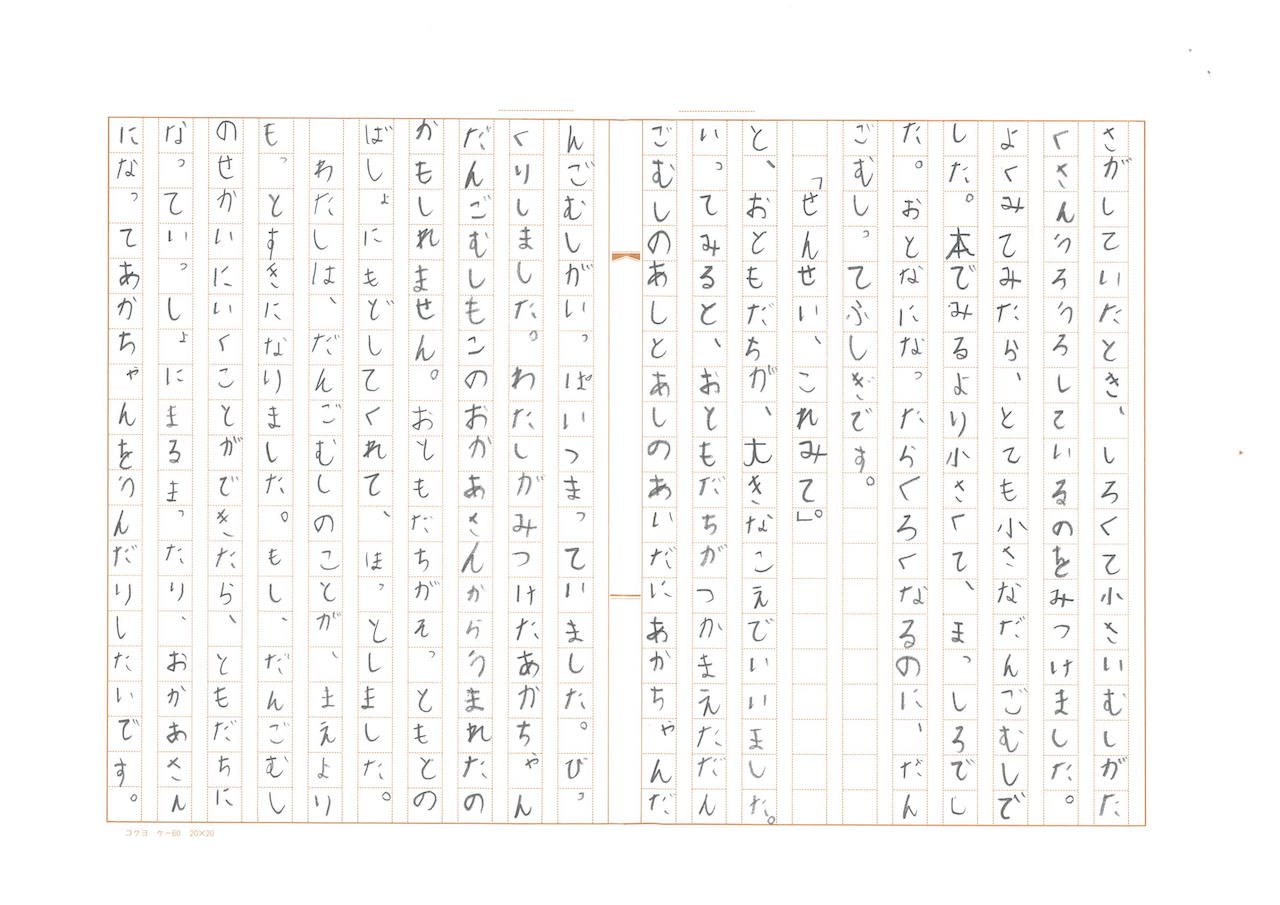 さがしていたとき、しろくて小さいむしがた
くさんうろうろしているのをみつけました。
よくみてみたら、とても小さなだんごむしで
した。本でみるより小さくて、まっしろでし
た。おとなになったらくろくなるのに、だん
ごむしってふしぎです。
「せんせい、これみて」。
と、おともだちが、大きなこえでいいました。
いってみると、おともだちがつかまえただん
ごむしのあしとあしのあいだにあかちゃんだ
んごむしがいっぱいつまっていました。びっ
くりしました。わたしがみつけたあかちゃん
だんごむしもこのおかあさんからうまれたの
かもしれません。おともだちがそっともとの
ばしょにもどしてくれて、はっとしました。
わたしは、だんごむしのことが、まえより
もっとすきになりました。もし、だんごむし
のせかいにいくことができたら、ともだちに
なっていっしょにまるまったり、おかあさん
になってあかちゃんをうんだりしたいです。
コクヨ ケー60 20×20